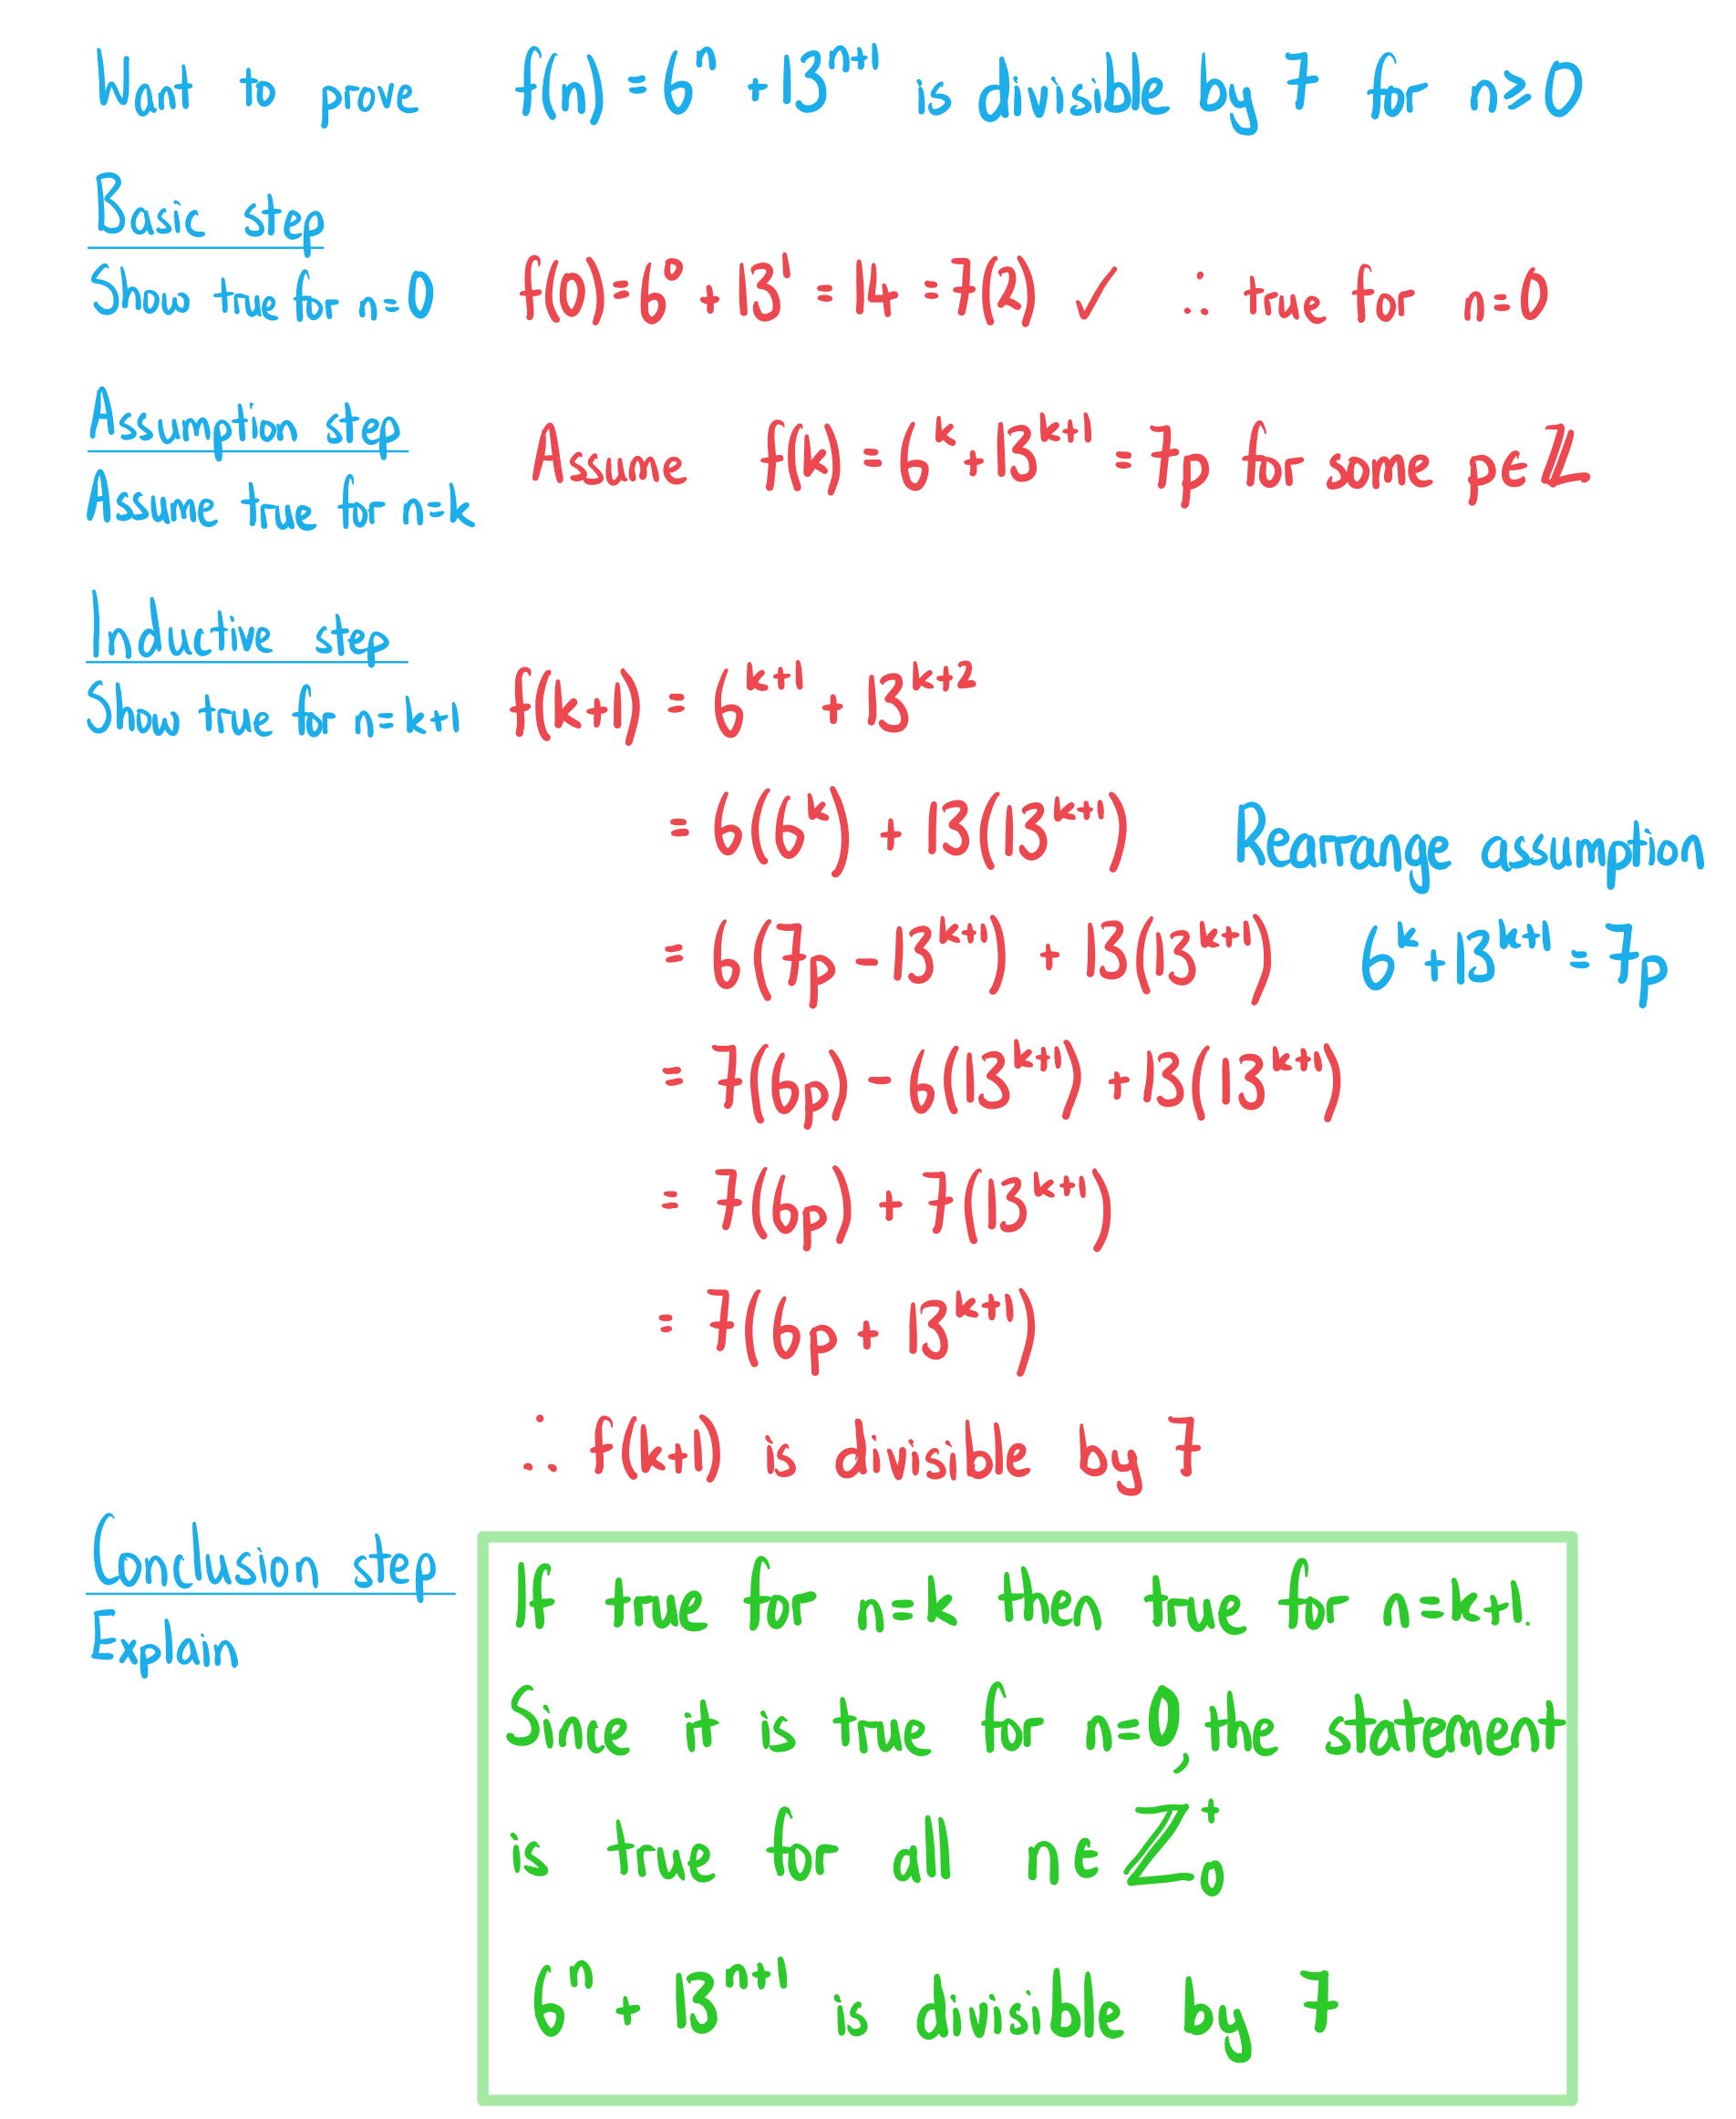 Want to prove f(n) = 6ⁿ + 13ⁿ⁺¹ is divisible by 7 for n ≥ 0
Basic step
Show true for n=0 f(0) = 6⁰ + 13¹ = 14 = 7(2) ✓ ∴ true for n=0
Assumption step
Assume f(k) = 6ᵏ + 13ᵏ⁺¹ = 7p for some p∈ℤ
Assume true for n=k
Inductive step
Show true for n=k+1 f(k+1) = 6ᵏ⁺¹ + 13ᵏ⁺²
= 6(6ᵏ) + 13(13ᵏ⁺¹) Rearrange assumption
= 6(7p − 13ᵏ⁺¹) + 13(13ᵏ⁺¹) 6ᵏ + 13ᵏ⁺¹ = 7p
= 7(6p) − 6(13ᵏ⁺¹) + 13(13ᵏ⁺¹)
= 7(6p) + 7(13ᵏ⁺¹)
= 7(6p + 13ᵏ⁺¹)
∴ f(k+1) is divisible by 7
Conclusion step
Explain
If true for n=k then true for n=k+1.
Since it is true for n=0, the statement
is true for all n∈ℤ₀⁺
6ⁿ + 13ⁿ⁺¹ is divisible by 7